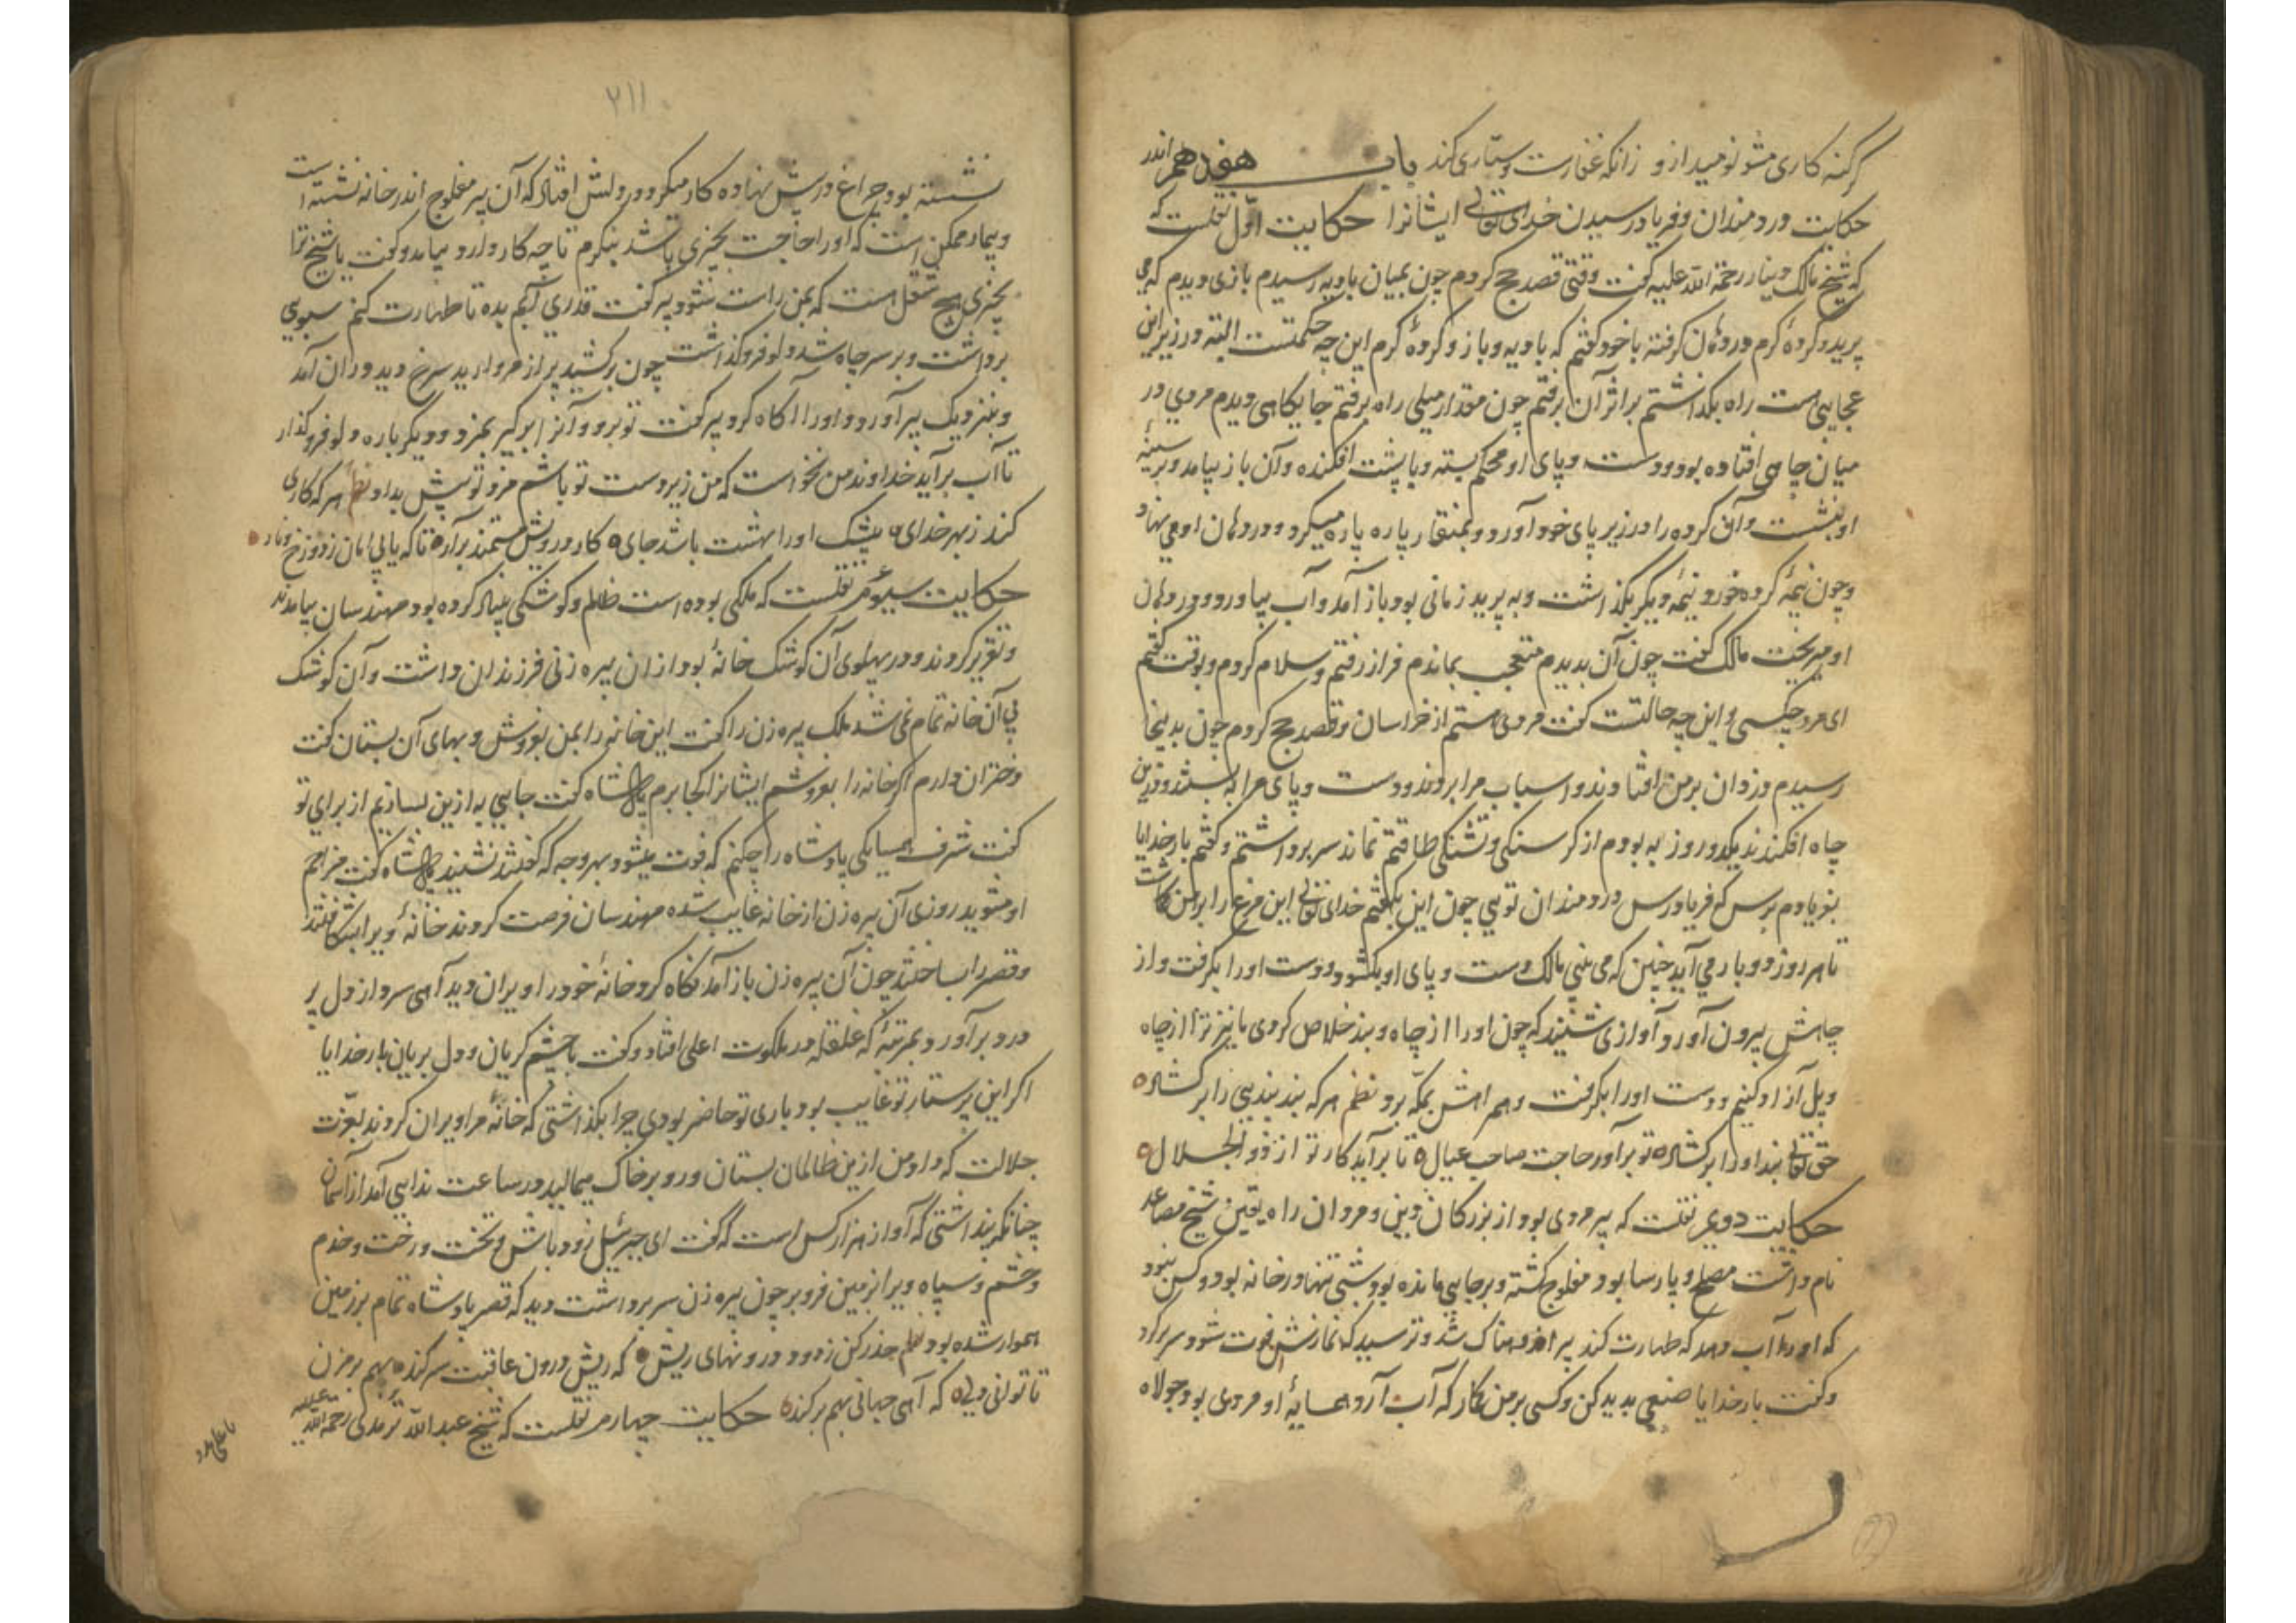 گر گنه کاری مشو نومید ازو زانکه غفارست و ستاری کند باب هفدهم اندر
حکایت دردمندان و فریاد رسیدن خدای تعالی ایشانرا حکایت اول نقلست که
که شیخ مالک دینار رحمة الله علیه گفت وقتی قصد حج کردم چون بمیان بادیه رسیدم بازی دیدم که می
پرید و گردهٔ گرم در دهان گرفته با خود گفتم که بادیه و باز و گردهٔ گرم این چه حکمتست البته در زیر این
عجایبی است راه بگذاشتم بر اثر آن برفتم چون مقدار میلی راه برفتم جایگاهی دیدم مردی در
میان چاهی افتاده بود و دست و پای او محکم بسته و با پشت افکنده و آن باز بیامد و بر سینهٔ
او بنشست و آن گرده را در زیر پای خود آورد و بمنقار پاره پاره میکرد و در دهان او می نهاد
و چون نیمهٔ گرده خورد نیمهٔ دیگر بگذاشت و به پرید زمانی بود باز آمد و آب بیاورد و در دهان
او میریخت مالک گفت چون آن بدیدم متعجب بماندم فراز رفتم و سلام کردم و گفتم
ای مرد چکسی و این چه حالتست گفت مردی هستم از خراسان و قصد حج کردم چون بدینجا
رسیدم دزدان بر من افتادند و اسباب مرا بردند و دست و پای مرا به بستند و درین
چاه افکندند یکدو روز به بودم از گرسنگی و تشنگی طاقتم نماند سر برداشتم و گفتم بار خدایا
بفریادم برس که فریادرس دردمندان تویی چون این بگفتم خدای تعالی این مرغ را بر من گماشت
تا هر روز دو بار می آید چنین که می بینی مالک دست و پای او بگشود و دست او را بگرفت و از
چاهش بیرون آورد آوازی شنید که چون او را از چاه و بند خلاص کردی ما نیز ترا از چاه
ویل آزاد کنیم دست او را بگرفت و همراهش بمکه برد نظم هر که بند بندیی را بر گشاد
حق تعالی بند او را بر گشاد تو برآور حاجت صاحب عیال تا برآید کار تو از ذو الجلال
حکایت دویم نقلست که پیر مردی بود از بزرگان دین و مردان راه یقین شیخ مصاعد
نام داشت مصلح و پارسا بود مفلوج گشته و بر جایی مانده بود شبی تنها در خانه بود و کسی نبود
که او را آب دهد که طهارت کند پیر اندوهناک شد و ترسید که نمازش فوت شود سر برکرد
و گفت بار خدایا صنعی پدید کن و کسی بر من گمار که آب آرد همسایهٔ او مردی بود جولاه
۲۱۱
نشسته بود و چراغ در پیش نهاده کار میکرد در دلش افتاد که آن پیر مفلوج اندر خانه نشسته است
و بیمار ممکن است که او را حاجت بچیزی باشد بنگرم تا چه کار دارد بیامد و گفت یا شیخ ترا
بچیزی هیچ شغل است که بمن راست شود پیر گفت قدری آبم بده تا طهارت کنم سبوی
برداشت و بر سر چاه شد دلو فرو گذاشت چون برکشید پر از مروارید سرخ دید دوان آمد
و بنزدیک پیر آورد و او را آگاه کرد پیر گفت تو برو و آنرا برگیر بمزد و دیگر باره دلو فرو گذار
تا آب برآید خداوند من نخواست که من زیر دست تو باشم مزد تو پیش بداد نظم هر که کاری
کند ز بهر خدای بیشک او را بهشت باشد جای کار درویش مستمند برآر تا که یابی امان ز دوزخ و نار
حکایت سیوم نقلست که ملکی بوده است ظالم و کوشکی بنیاد کرده بود مهندسان بیامدند
و تقریر کردند و در پهلوی آن کوشک خانهٔ بود از ان پیره زنی فرزندان داشت و آن کوشک
بی آن خانه تمام نمی شد ملک پیره زن را گفت این خانه را بمن بفروش و بهای آن بستان گفت
دختران دارم اگر خانه را بفروشم ایشانرا کجا برم پادشاه گفت جایی به ازین بسازیم از برای تو
گفت شرف همسایگی پادشاه را چکنم که فوت میشود بهر وجه که گفتند نشنید پادشاه گفت مزاحم
او مشوید روزی آن پیره زن از خانه غایب شده مهندسان فرصت کردند خانهٔ ویرا بشکافتند
و قصر را بساختند چون آن پیره زن باز آمد نگاه کرد خانهٔ خود را ویران دید آهی سرد از دل پر
درد برآورد بمرتبهٔ که غلغله در ملکوت اعلی افتاد و گفت با چشم گریان و دل بریان بار خدایا
اگر این پرستار تو غایب بود باری تو حاضر بودی چرا بگذاشتی که خانهٔ مرا ویران کردند بعزت
جلالت که داد من ازین ظالمان بستان و رو بر خاک میمالید در ساعت ندایی آمد از آسمان
چنانکه پنداشتی که آواز هزار کس است که گفت ای جبرئیل زود باش و تخت و رخت و خدم
و حشم و سپاه ویرا بزمین فرو بر چون پیره زن سر برداشت دید که قصر پادشاه تمام بر زمین
هموار شده بود نظم حذر کن ز دود درونهای ریش که ریش درون عاقبت سر کند بهم بر مزن
تا توانی دلی که آهی جهانی بهم بر کند حکایت چهارم نقلست که شیخ عبد الله ترمدی رحمة الله علیه